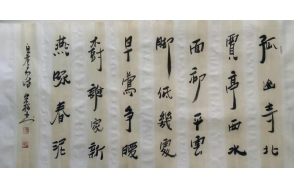 孤山寺北
賈亭西水
面初平雲
脚低幾處
早鶯争暖
樹誰家新
燕啄春泥